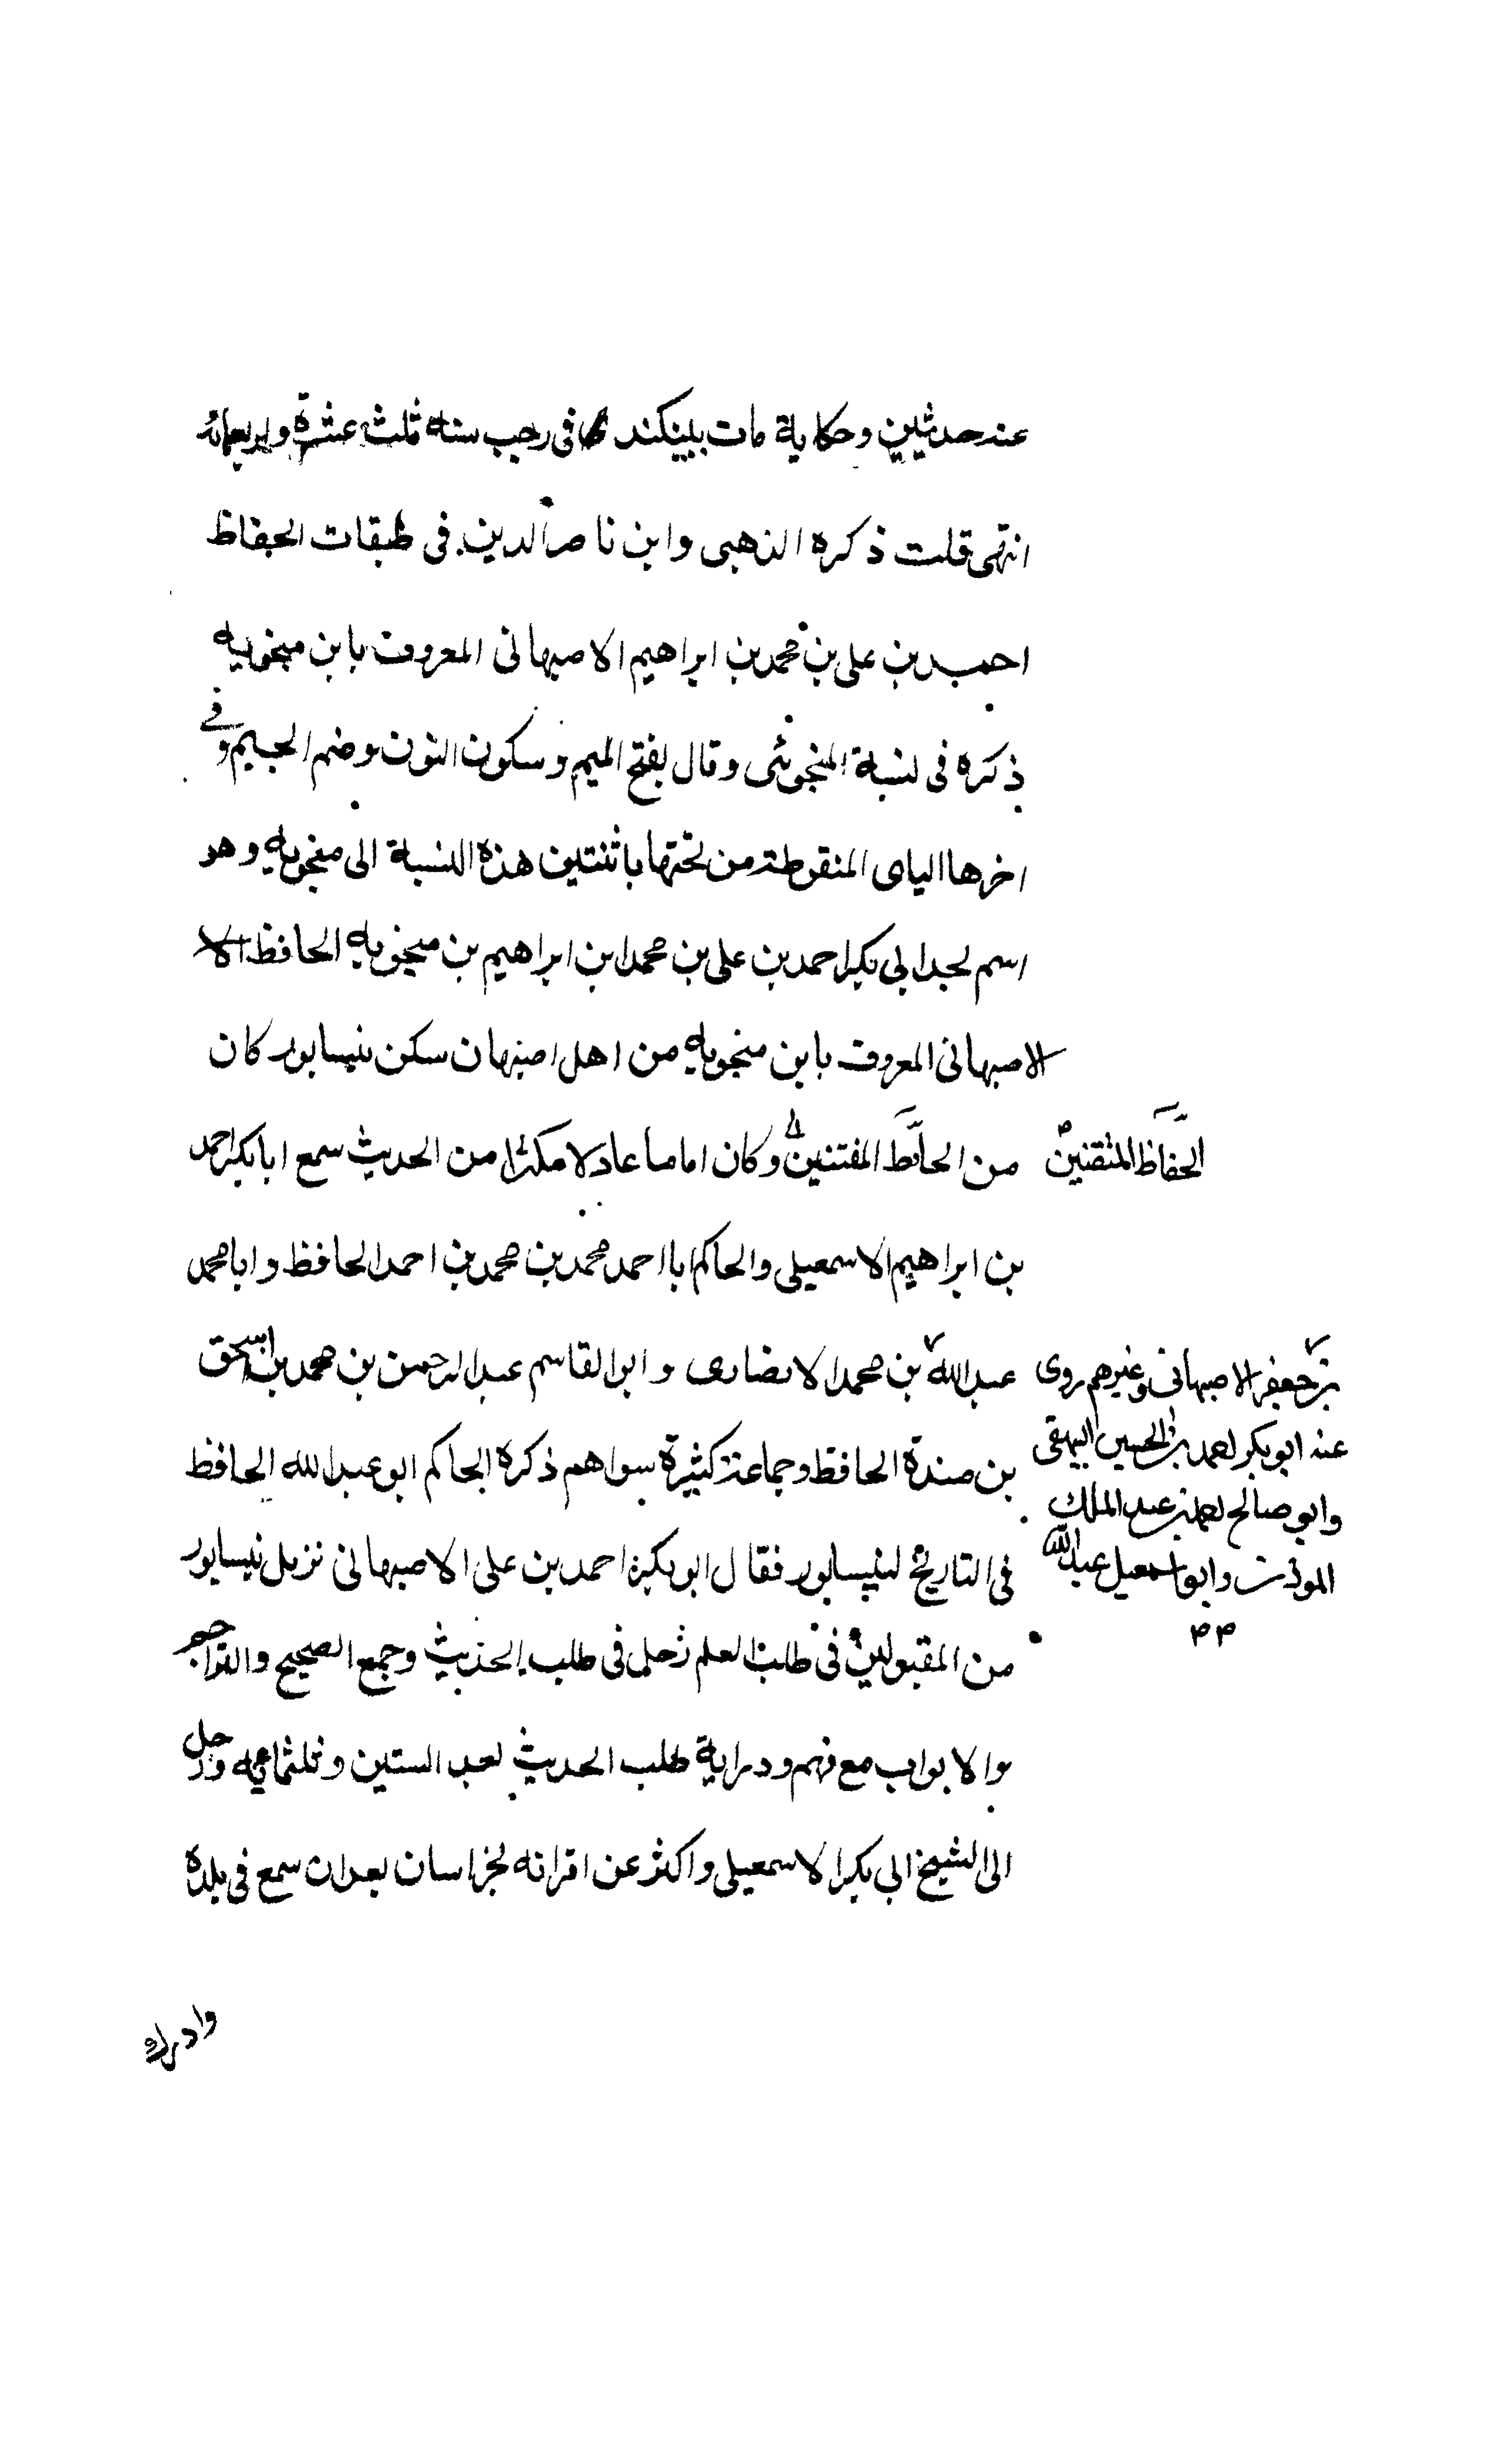 عنه حديثين وحكاية مات ببيكند في رجب سنة ثلث عشرة واربعمائة
انتهى قلت ذكره الذهبى وابن ناصر الدين في طبقات الحفاظ
احمد بن على بن محمد بن ابراهيم الاصبهانى المعروف بابن منجويه
ذكره في نسبة المنجوئى وقال بفتح الميم وسكون النون وضم الجيم وفي
اخرها الياى المنقوطة من تحتها باثنتين هذه النسبة الى منجويه وهو
اسم لجد ابى بكر احمد بن على بن محمد ابن ابراهيم بن منجويه الحافظ الا
الاصبهانى المعروف بابن منجويه من اهل اصبهان سكن نيسابور كان
من الحافظ المفتنين وكان اماما عادلا مكثرا من الحديث سمع ابا بكر احمد
الحفاظ المتقنين
بن ابراهيم الاسمعيلى والحاكم ابا احمد محمد بن محمد بن احمد الحافظ وابا محمد
عبد الله بن محمد الانصارى وابو القاسم عبد الرحمن بن محمد بن اسحق
بن جعفر الاصبهانى وغيرهم روى
عنه ابو بكر احمد بن الحسين البيهقى
وابو صالح احمد بن عبد الملك
الموذن وابو اسمعيل عبد الله
بن مندة الحافظ وجماعة كثيرة سواهم ذكره الحاكم ابو عبد الله الحافظ
في التاريخ لنيسابور فقال ابو بكر احمد بن على الاصبهانى نزيل نيسابور
من المقبولين في طلب العلم رحل في طلب الحديث وجمع الصحيح والتراجم
والابواب مع فهم ودراية طلب الحديث بعد الستين وثلثمائة ورحل
الى الشيخ ابى بكر الاسمعيلى واكثر عن اقرانه بخراسان بعد ان سمع في بلده
وادرك